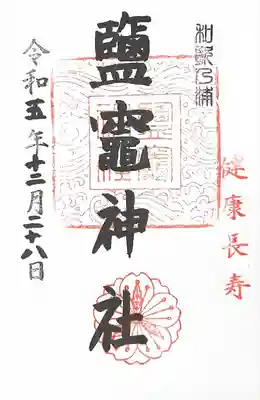 和歌乃浦
健康長寿
鹽竈神社
令和五年十二月二十八日